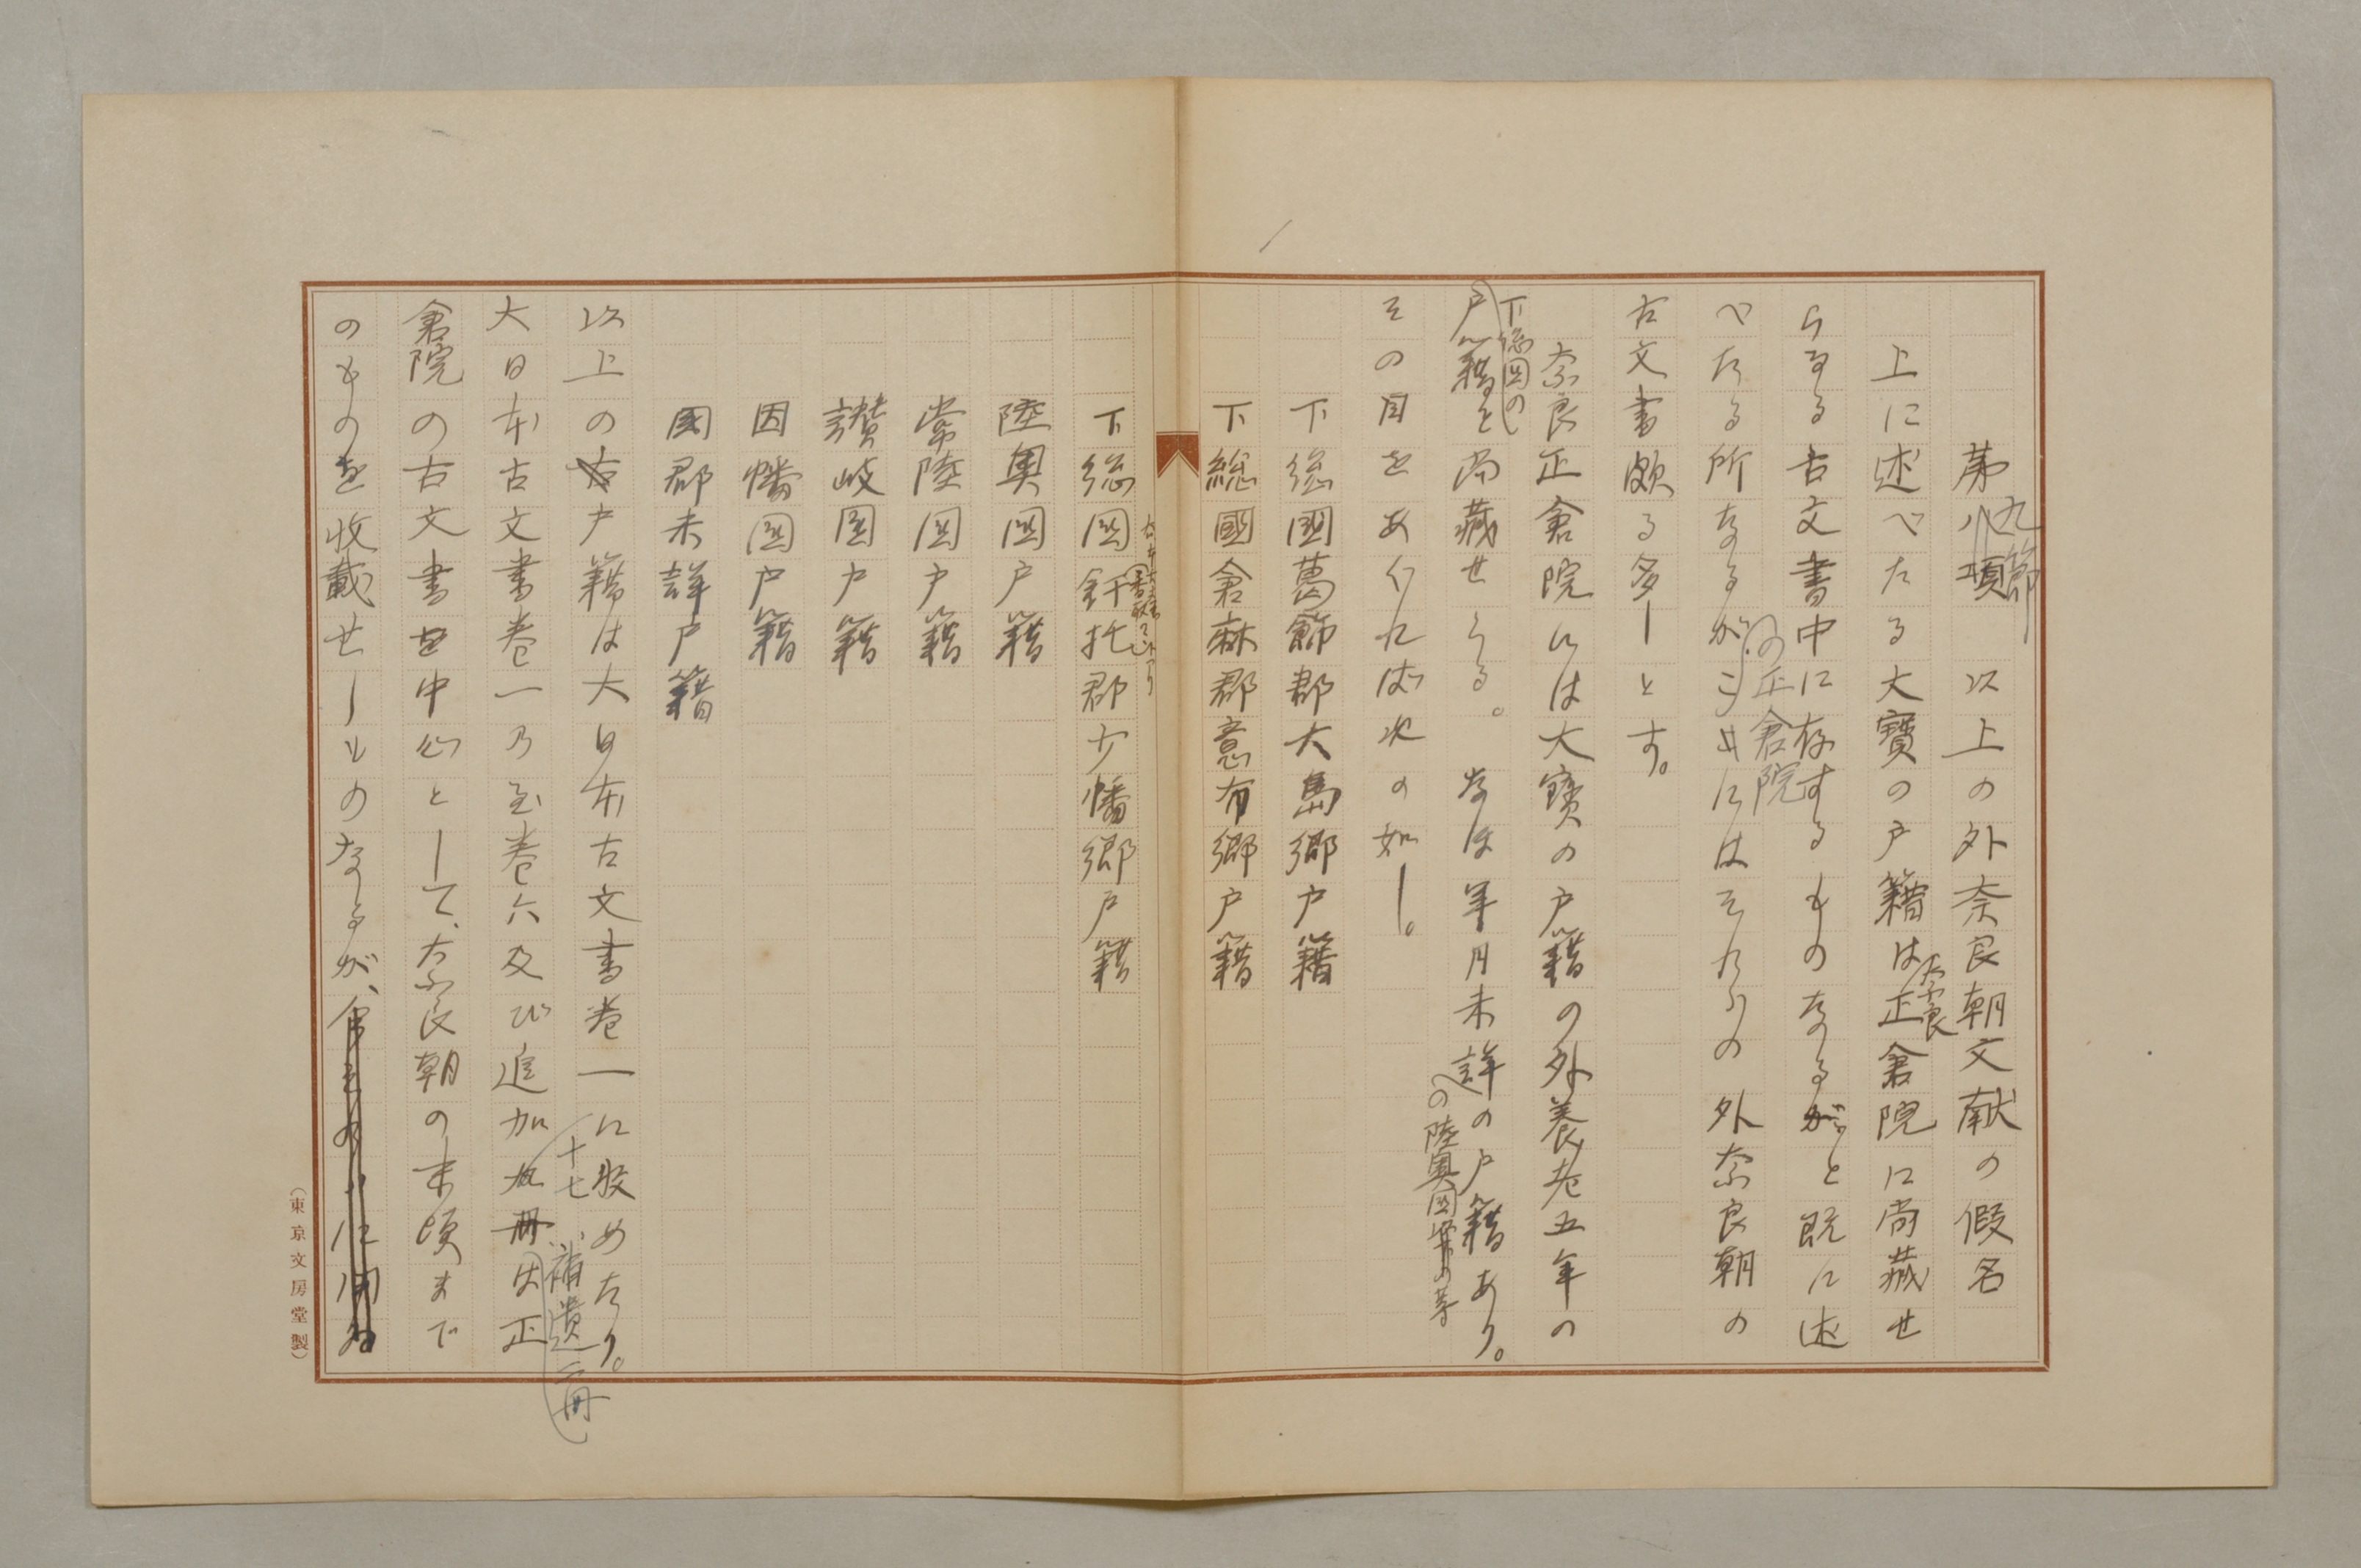 第九節　以上の外奈良朝文献の假名
上に述べたる大寶の戸籍は奈良正倉院に尚藏せ
らるる古文書中に存するものなること既に述
べたる所なるが、この正倉院にはそれらの外奈良朝の
古文書頗る多しとす。
奈良正倉院には大寶の戸籍の外養老五年の
下総国の戸籍を尚藏せらる。なほ年月未詳の陸奥国等の戸籍あり。
その目をあぐれば次の如し。
下総國葛飾郡大島郷戸籍
下総國倉麻郡意布郷戸籍
下総国釬托郡少幡郷戸籍
陸奥国戸籍
常陸国戸籍
讃岐国戸籍
因幡国戸籍
國郡未詳戸籍
以上の戸籍は大日本古文書卷一に收めたり。
大日本古文書卷一乃至卷六及び追加十七、補遺二冊は正
倉院の古文書を中心として、奈良朝の末頃まで
のものを收載せしものなるが、
（東京文房堂製）